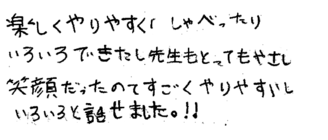 楽しくやりやすく、しゃべったり
いろいろできたし先生もとってもやさし
笑顔だったのてすごくやりやすいし
いろいろと話せました。!!